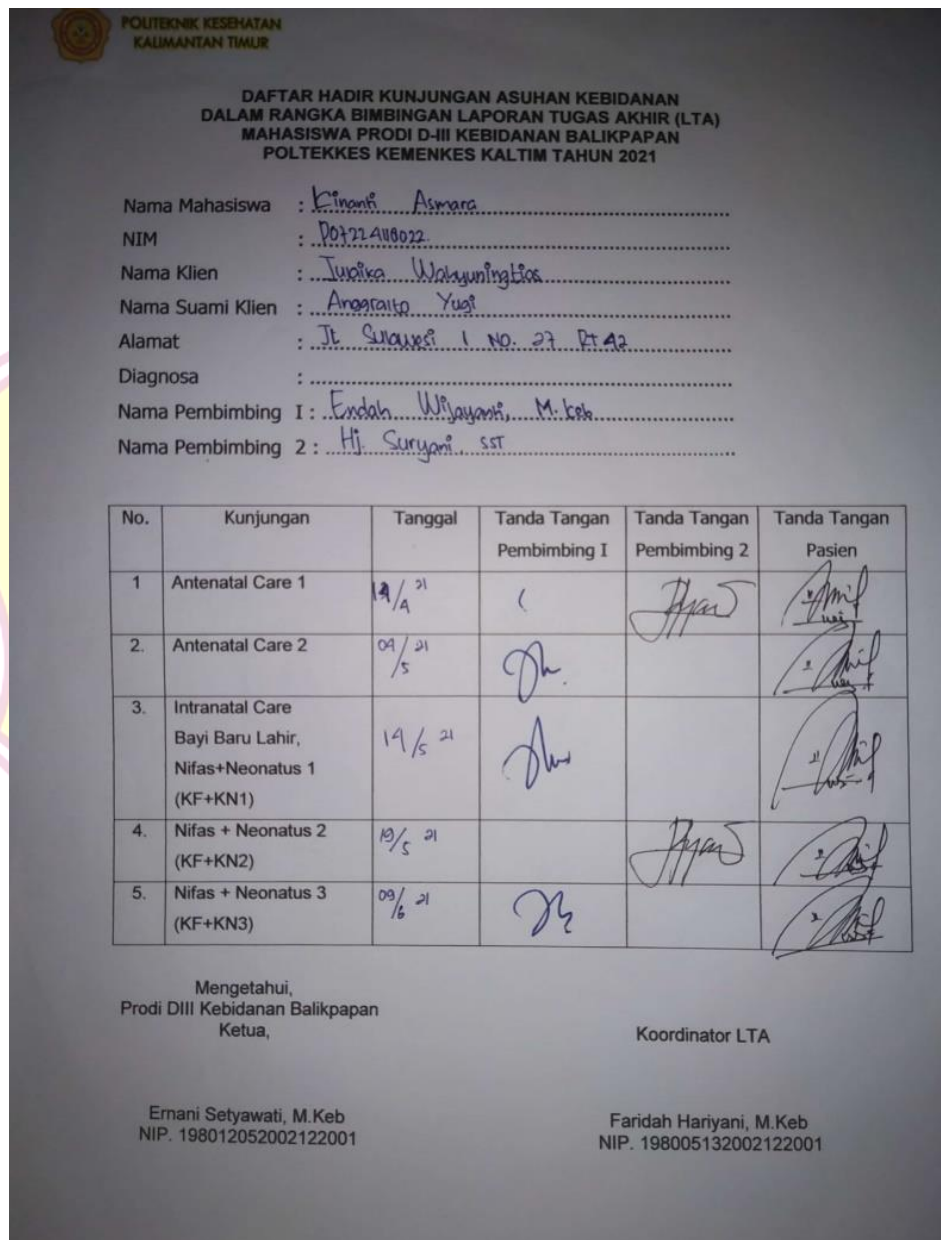 POLITEKNIK KESEHATAN
KALIMANTAN TIMUR
DAFTAR HADIR KUNJUNGAN ASUHAN KEBIDANAN
DALAM RANGKA BIMBINGAN LAPORAN TUGAS AKHIR (LTA)
MAHASISWA PRODI D-III KEBIDANAN BALIKPAPAN
POLTEKKES KEMENKES KALTIM TAHUN 2021
Nama Mahasiswa : Kinanti Asmara
NIM :
Nama Klien :
Nama Suami Klien : Yugi
Alamat : Jl. Sulawesi 1 NO. 27 Rt 42
Diagnosa :
Nama Pembimbing I : Endah Wijayanti, M.Keb
Nama Pembimbing 2 : Hj. Suryani, SST
No. Kunjungan Tanggal Tanda Tangan Pembimbing I Tanda Tangan Pembimbing 2 Tanda Tangan Pasien
1 Antenatal Care 1
2. Antenatal Care 2 09/5 21
3. Intranatal Care
Bayi Baru Lahir, 14/5 21
Nifas+Neonatus 1
(KF+KN1)
4. Nifas + Neonatus 2 19/5 21
(KF+KN2)
5. Nifas + Neonatus 3 09/6 21
(KF+KN3)
Mengetahui,
Prodi DIII Kebidanan Balikpapan
Ketua,
Koordinator LTA
Ernani Setyawati, M.Keb
NIP. 198012052002122001
Faridah Hariyani, M.Keb
NIP. 198005132002122001